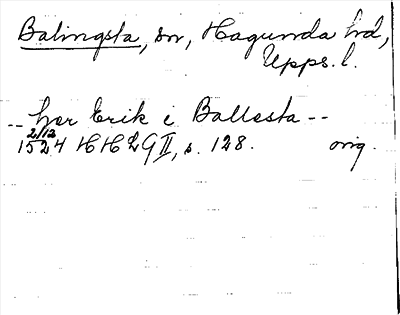 Balingsta, sn, Hagunda hd,
Upps. l.
-- her Erik i Ballesta --
2/12
1524 HH 29 II, s. 128. orig.